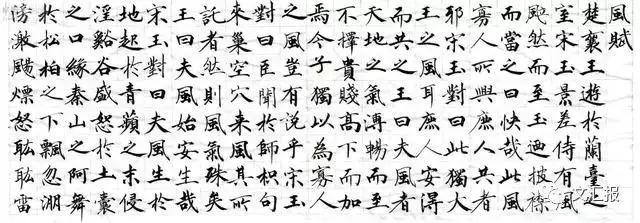 風賦
楚襄王遊於蘭臺之
宮宋玉景差侍有風
颯然而至王迺披襟
而當之曰快哉此風
寡人所與庶人共者
邪宋玉對曰此獨大
王之風耳庶人安得
而共之王曰夫風者
天地之氣溥暢而至
不擇貴賤高下而加
焉今子獨以為寡人
之風豈有說乎宋玉
對曰臣聞於師枳句
來巢空穴來風其所
託者然則風氣殊矣
王曰夫風始安生哉
宋玉對曰夫風生於
地起於青蘋之末侵
淫谿谷盛怒於土囊
之口緣秦山之阿舞
於松柏之下飄忽淜
滂激颺熛怒耾耾雷
文汇报